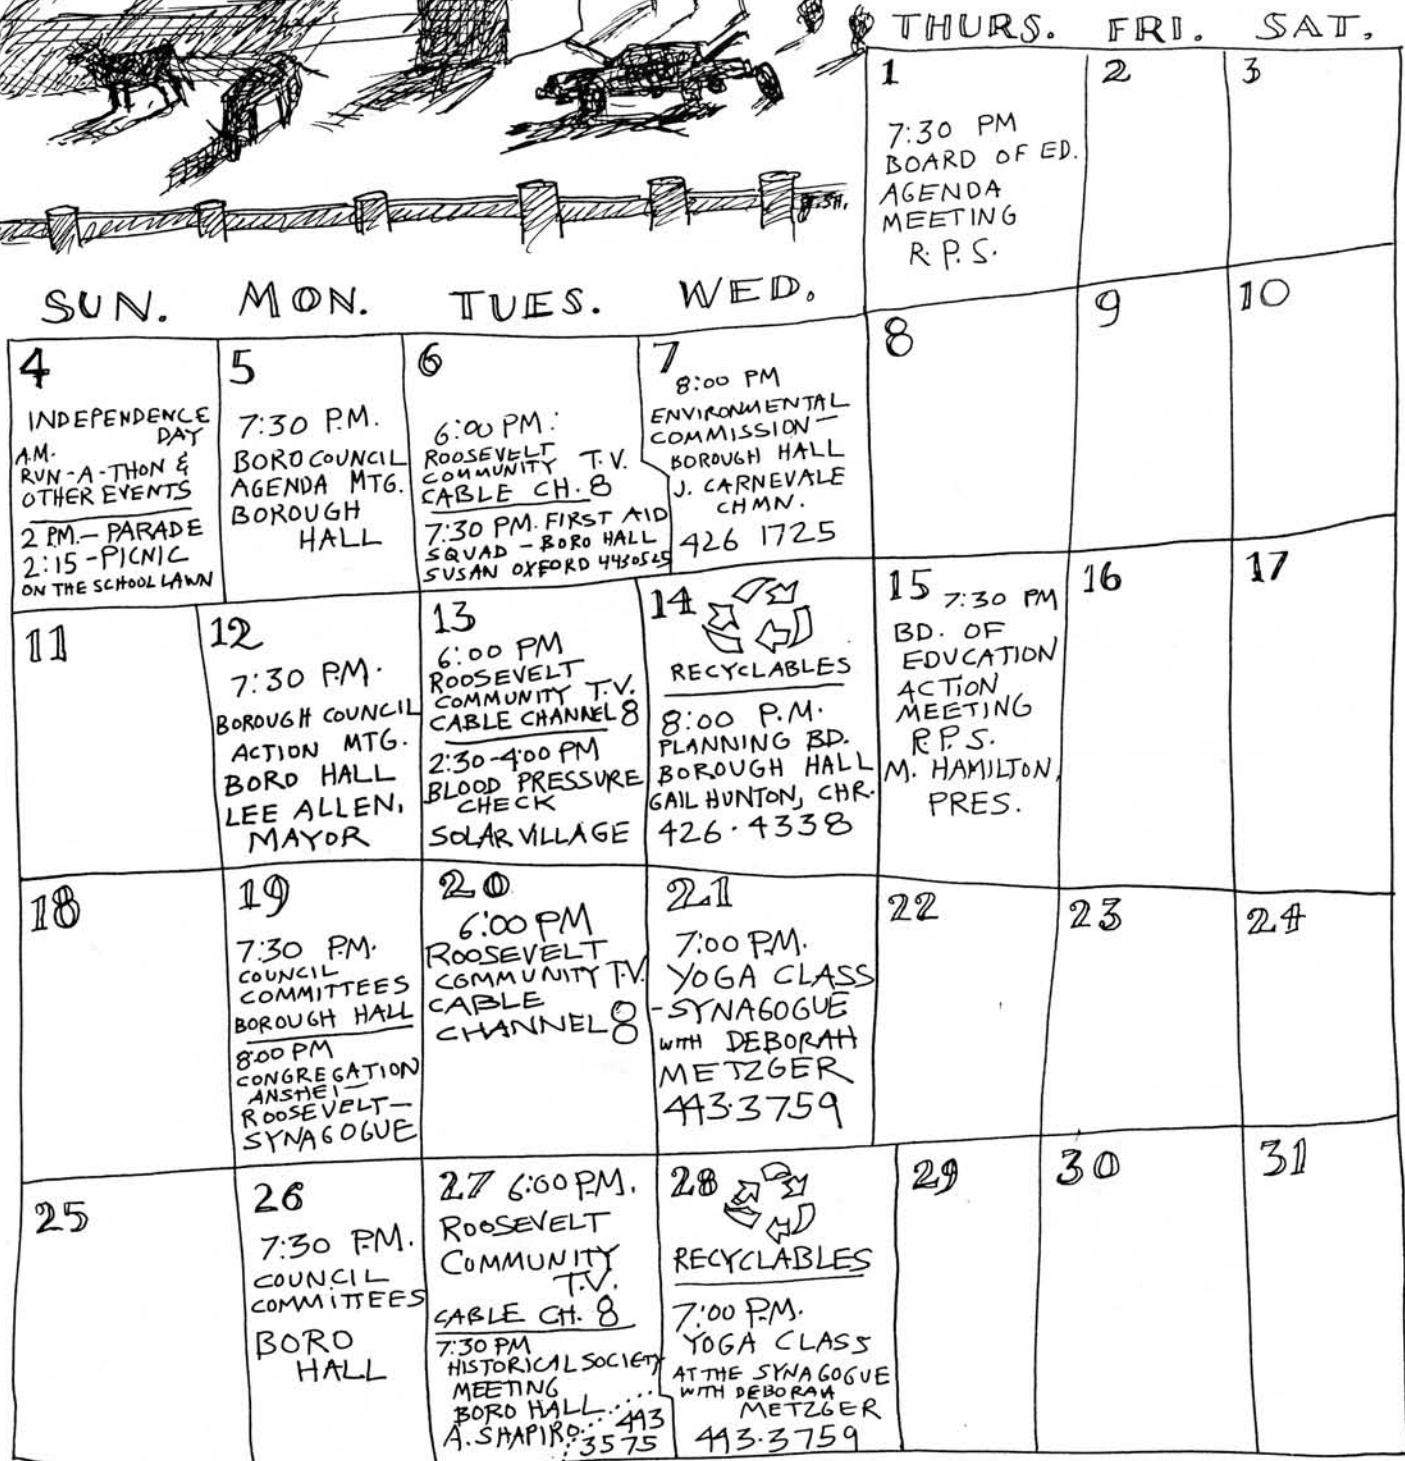 THURS. FRI. SAT.
1
7:30 PM
BOARD OF ED.
AGENDA
MEETING
R.P.S.
2
3
SUN. MON. TUES. WED.
4
INDEPENDENCE
DAY
A.M.
RUN-A-THON &
OTHER EVENTS
2 P.M.- PARADE
2:15-PICNIC
ON THE SCHOOL LAWN
5
7:30 P.M.
BORO COUNCIL
AGENDA MTG.
BOROUGH
HALL
6
6:00 PM:
ROOSEVELT
COMMUNITY T.V.
CABLE CH. 8
7:30 PM. FIRST AID
SQUAD - BORO HALL
SUSAN OXFORD 4430525
7
8:00 PM
ENVIRONMENTAL
COMMISSION-
BOROUGH HALL
J. CARNEVALE
CHMN.
426 1725
8
9
10
11
12
7:30 P.M.
BOROUGH COUNCIL
ACTION MTG.
BORO HALL
LEE ALLEN,
MAYOR
13
6:00 PM
ROOSEVELT
COMMUNITY T.V.
CABLE CHANNEL 8
2:30-4:00 PM
BLOOD PRESSURE
CHECK
SOLAR VILLAGE
14
RECYCLABLES
8:00 P.M.
PLANNING BD.
BOROUGH HALL
GAIL HUNTON, CHR.
426.4338
15 7:30 PM
BD. OF
EDUCATION
ACTION
MEETING
R.P.S.
M. HAMILTON,
PRES.
16
17
18
19
7:30 P.M.
COUNCIL
COMMITTEES
BOROUGH HALL
8:00 PM
CONGREGATION
ANSHEI-
ROOSEVELT-
SYNAGOGUE
20
6:00 PM
ROOSEVELT
COMMUNITY T.V.
CABLE
CHANNEL 8
21
7:00 P.M.
YOGA CLASS
-SYNAGOGUE
WITH DEBORAH
METZGER
443.3759
22
23
24
25
26
7:30 P.M.
COUNCIL
COMMITTEES
BORO
HALL
27 6:00 P.M.
ROOSEVELT
COMMUNITY
T.V.
CABLE CH. 8
7:30 PM
HISTORICAL SOCIETY
MEETING
BORO HALL
A. SHAPIRO 443
3575
28
RECYCLABLES
7:00 P.M.
YOGA CLASS
AT THE SYNAGOGUE
WITH DEBORAH
METZGER
443.3759
29
30
31